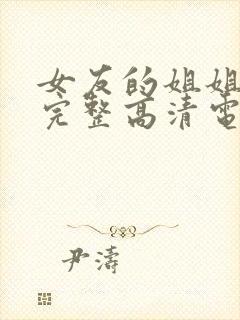 女友的姐姐
完整高清电
尹濤